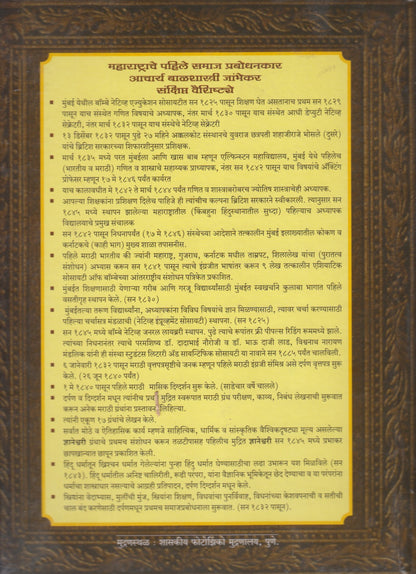 महाराष्ट्राचे पहिले समाज प्रबोधनकार
आचार्य बाळशास्त्री जांभेकर
संक्षिप्त वैशिष्ट्ये
मुंबई येथील बॉम्बे नेटिव्ह एज्युकेशन सोसायटीत सन १८२५ पासून शिक्षण घेत असतानाच प्रथम सन १८२९
पासून याच संस्थेत गणित विषयाचे अध्यापक, नंतर मार्च १८३० पासून याच संस्थेत आधी डेप्युटी नेटिव्ह
सेक्रेटरी, नंतर मार्च १८३२ पासून याच संस्थेचे नेटिव्ह सेक्रेटरी
१३ डिसेंबर १८३२ पासून पुढे २७ महिने अक्कलकोट संस्थानचे युवराज छत्रपती शहाजीराजे भोसले (दुसरे)
यांचे ब्रिटिश सरकारच्या शिफारशीनुसार प्रशिक्षक.
मार्च १८३५ मध्ये परत मुंबईला आणि खास बाब म्हणून एल्फिन्स्टन महाविद्यालय, मुंबई येथे पहिलेच
(भारतीय व मराठी) गणित व शास्त्राचे सहाय्यक प्राध्यापक, नंतर सन १८४२ पासून याच विषयांचे अॅक्टिंग
प्रोफेसर म्हणून १७ मे १८४६ पर्यंत कार्यरत
याच कालावधीत मे १८४२ ते मार्च १८४४ पर्यंत गणित व शास्त्राबरोबरच ज्योतिष शास्त्राचेही अध्यापक.
आपल्या शिक्षकांना प्रशिक्षण दिलेच पाहिजे ही त्यांचीच कल्पना ब्रिटिश सरकारने स्वीकारली. त्यानुसार सन
१८४५ मध्ये स्थापन झालेल्या महाराष्ट्रातील (किंबहुना हिंदुस्थानातील सुध्दा) पहिल्याच अध्यापक
विद्यालयाचे प्रमुख संचालक
सन १८४२ पासून निधनापर्यंत (१७ मे १८४६) संस्थेच्या आदेशाने तत्कालीन मुंबई इलाख्यातील कोकण व
कर्नाटकचे (काही भाग) मुख्य शाळा तपासनीस.
पहिले मराठी भारतीय की ज्यांनी महाराष्ट्र, गुजराथ, कर्नाटक मधील ताम्रपट, शिलालेख यांचा (पुरातत्व
संशोधन) अभ्यास करून सन १८४१ पासून त्याचे इंग्रजीत भाषांतर करून ९ लेख तत्कालीन एशियाटिक
सोसायटी ऑफ बॉम्बेच्या आंतरराष्ट्रीय संशोधन पत्रिकेत प्रकाशित.
मुंबईत शिक्षणासाठी येणाऱ्या गरीब आणि गरजू विद्यार्थ्यांसाठी मुंबईत स्वखर्चाने कुलाबा भागात पहिले
वसतीगृह स्थापन केले. (सन १८३०)
मुंबईतल्या तरुण विद्यार्थ्यांना, अध्यापकांना विविध विषयांचे ज्ञान मिळण्यासाठी, त्यावर चर्चा करण्यासाठी
पहिल्या चर्चासत्र मंडळाची (नेटिव्ह इंप्रुव्हमेंट सोसायटी) स्थापना. (सन १८२५)
सन १८४५ मध्ये बॉम्बे नेटिव्ह जनरल लायब्ररी स्थापन. पुढे त्याचे रूपांतर फ्री पीपल्स रिडिंग रूममध्ये झाले.
त्यांच्या निधनानंतर त्याचे परमशिष्य डॉ. दादाभाई नौरोजी व डॉ. भाऊ दाजी लाड, विश्वनाथ नारायण
मंडलिक यांनी ही संस्था स्टुडंटस लिटररी अँड सायन्टिफिक सोसायटी या नावाने सन १८८५ पर्यंत चालविली.
६ जानेवारी १८३२ पासून मराठी वृत्तपत्रसृष्टीचे जनक म्हणून पहिले मराठी इंग्रजी मंमिश्र असे दर्पण वृत्तपत्र सुरू
केले. (२६ जून १८४० पर्यंत)
१ मे १८४० पासून पहिले मराठी मासिक दिग्दर्शन सुरू केले. (साडेचार वर्षे चालले)
दर्पण व दिग्दर्शन मधून त्यांनीच प्रथम मुद्रित स्वरूपात मराठी ग्रंथ परीक्षण, काव्य, निबंध लेखनाची सुरूवात
करून अनेक मराठी ग्रंथांना प्रस्तावना लिहिल्या.
त्यांनी एकूण १७ ग्रंथांचे लेखन केले.
सर्वात मोठे व ऐतिहासिक कार्य म्हणजे साहित्यिक, धार्मिक व सांस्कृतिक वैश्विकदृष्ट्या मूल्य असलेल्या
ज्ञानेश्वरी ग्रंथाचे प्रथम संशोधन करून तळटीपासह पहिलीच मुद्रित ज्ञानेश्वरी सन १८४५ मध्ये प्रभाकर
छापखान्यात छापून प्रकाशित केली.
हिंदू धर्मातून ख्रिश्चन धर्मात गेलेल्यांना पुन्हा हिंदू धर्मात घेण्यासाठीचा लढा उभारून यश मिळविले (सन
१८४३). हिंदू धर्मातील अनिष्ट चालिरीती, रूढी परंपरा, यांना वैज्ञानिक भूमिकेतून छेद देण्याचा व या परंपरांना
धर्माचा शास्त्राधार नसल्याचे आग्रही प्रतिपादन, दर्पण दिग्दर्शन मधून केले.
स्त्रियांना वेदाभ्यास, मुलींची मुंज, स्त्रियांना शिक्षण, विधवांचा पुनर्विवाह, विधनांच्या केशवपनाची व सतीची
चाल बंद करणेसाठी दर्पणमधून प्रथमच समाजप्रबोधनाला सुरूवात. (सन १८३२ पासून).
मुद्रणस्थळ : शासकीय फोटोझिंको मुद्रणालय, पुणे.